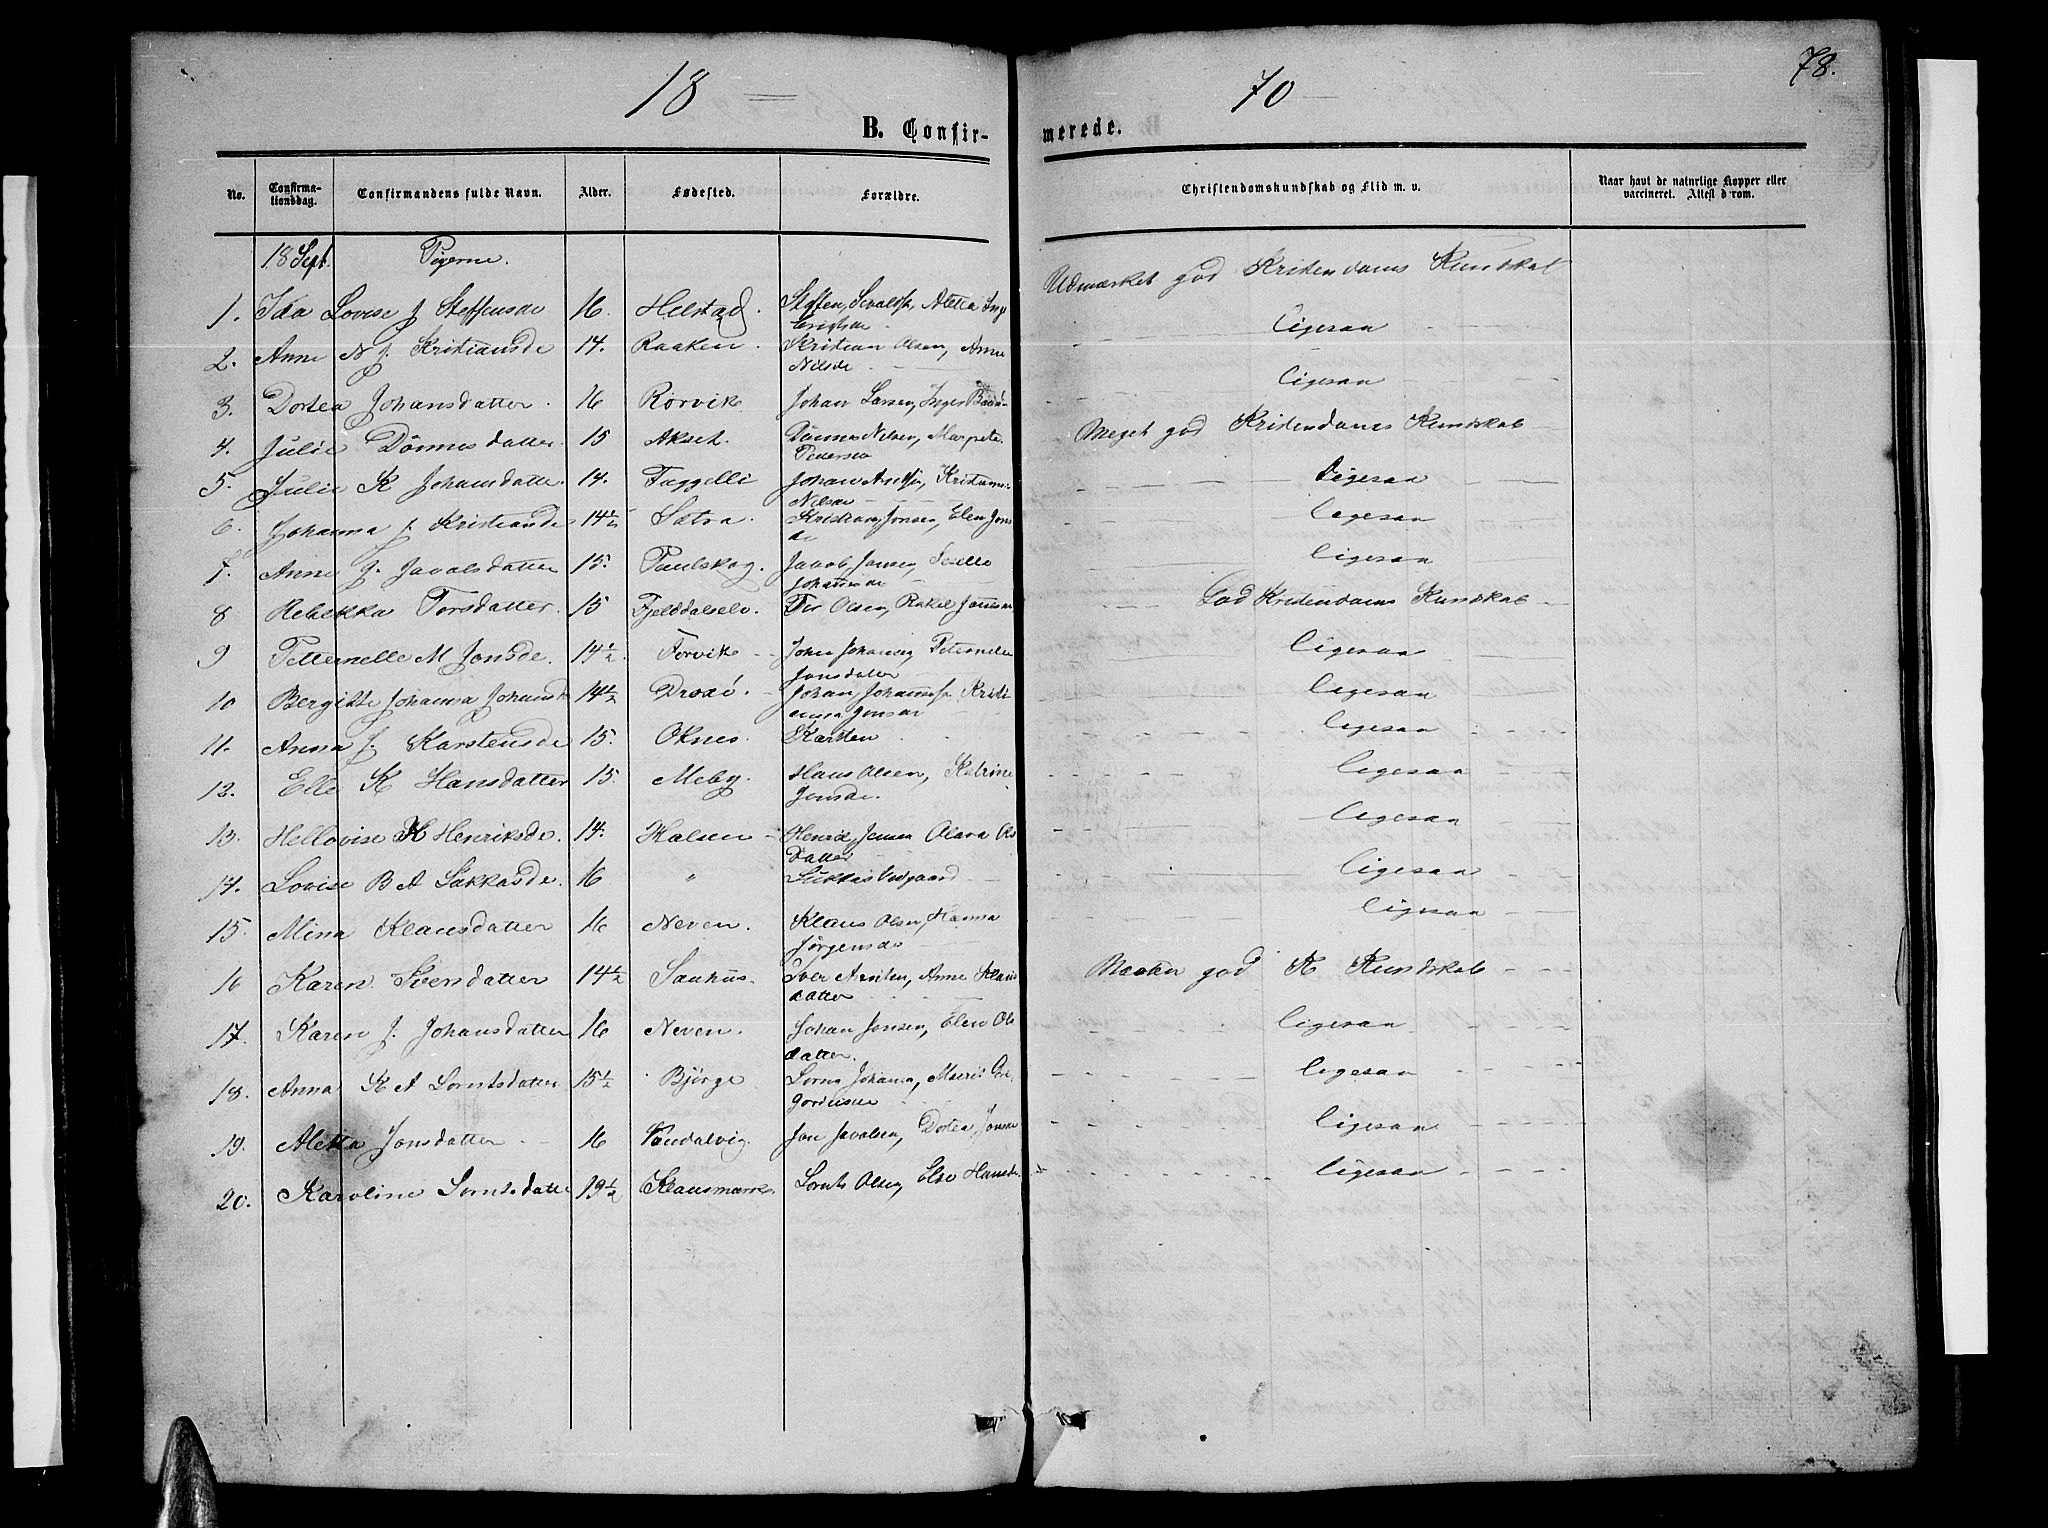 18 = 70
78.
B. Confirmerede.
No. Confirmationsdag. Confirmandens fulde Navn. Alder. Fødested. Forældre. Christendomskundskab og Flid m. v. Naar havt de naturlige Kopper eller vaccineret. Attest derom.
18 Sept. Pigerne.
1. Ida Lovise J Steffensde 16. Helstad. Steffen Sivalds, Aletta Udmærket god Kristendoms Kundskab
2. Anne N J. Kristiansde 14. Raaken. Kristian Olsen, Anne Nilsde Ligesaa
3. Dortea Johansdatter. 16 Rorvik Johan Larsen, Inger Ligesaa
4. Julie Dønnes datter. 15 Akset. Dønnes Nilsen, Marpete Pedersde Meget god Kristendoms Kundskab
5. Julie K Johansdatte. 14. Faggelli Johan Kristiane Nilsde Ligesaa
6. Johanna J. Kristiansde 14½ Sætra. Kristian Jonsen, Elen Jonsde Ligesaa
7. Anne J. Javalsdatter 15. Paulskog. Jonsen, Johannsde Ligesaa
8 Rebekka Torsdatter. 15 Fjelddalselv. Tor Olsen, Rakel God Kristendoms Kundskab
9 Petternelle M Jonsde. 14½. Forvik John Johansen, Jonsdatter Ligesaa
10 Bergitte Johanna Johansd 14½ Johan Johannes. Jonsde Ligesaa
11. Anna J. Karstensde 15. Oknes. Karsten Ligesaa
12. Elle K Hansdatter 15. Meby. Hans Olsen, Katrine Jonsde. Ligesaa
13. Hellovise K Henriksde. 14. Halsen Henrik Jensen Olava Ols datter Ligesaa
14. Lovise B A Sakkasde. 16. " Ligesaa
15. Mina Klausdatter 16 Neven. Klaus Olsen, Hanna Jørgensde Ligesaa
16 Karen Ivendatter 14½ Sauhus. Iver Anne Klaus datter god K Kundskab
17. Karen J. Johansdatter 16 Neven. Johan Jonsen, Elen Ols datter. Ligesaa
18. Anna K A Lorntsdatter 15½ Bjørge Johanns, Ligesaa
19. Aletta Jonsdatter 16 Jon Javalsen, Dortea Ligesaa
20. Karoline Lorntsdatte Klausmark Lornts Olsen, Else Hansd Ligesaa